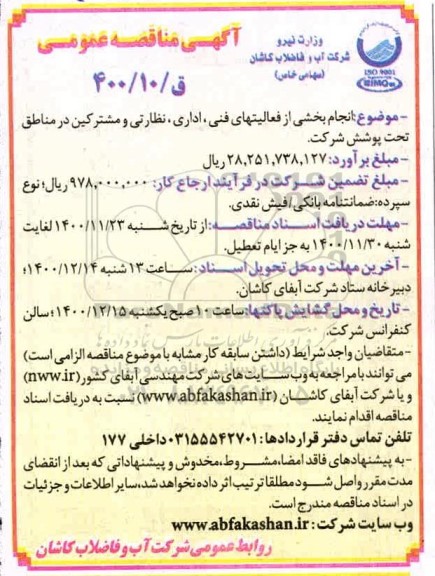 آگهی مناقصه عمومی
ق/۴۰۰/۱۰
وزارت نیرو
شرکت آب و فاضلاب کاشان
(سهامی خاص)
ISO 9001
-موضوع:انجام بخشی از فعالیتهای فنی، اداری، نظارتی و مشترکین در مناطق
تحت پوشش شرکت.
-مبلغ برآورد: ۲۸,۲۵۱,۷۳۸,۱۲۷ ریال
-مبلغ تضمین شرکت در فرآیند ارجاع کار: ۹۷۸,۰۰۰,۰۰۰ ریال؛ نوع
سپرده:ضمانتنامه بانکی/فیش نقدی.
-مهلت دریافت اسناد مناقصه:از تاریخ شنبه ۱۴۰۰/۱۱/۲۳ لغایت
شنبه ۱۴۰۰/۱۱/۳۰ به جز ایام تعطیل.
-آخرین مهلت و محل تحویل اسناد: ساعت ۱۳ شنبه ۱۴۰۰/۱۲/۱۴؛
دبیرخانه ستاد شرکت آبفای کاشان.
-تاریخ و محل گشایش پاکتها:ساعت ۱۰ صبح یکشنبه ۱۴۰۰/۱۲/۱۵؛سالن
کنفرانس شرکت.
-متقاضیان واجد شرایط (داشتن سابقه کار مشابه با موضوع مناقصه الزامی است)
می توانند با مراجعه به وب سایت های شرکت مهندسی آبفای کشور (nww.ir)
و یا شرکت آبفای کاشان (www.abfakashan.ir) نسبت به دریافت اسناد
مناقصه اقدام نمایند.
تلفن تماس دفتر قراردادها: ۰۳۱۵۵۵۴۲۷۰۱ داخلی ۱۷۷
-به پیشنهادهای فاقد امضا،مشروط،مخدوش و پیشنهاداتی که بعد از انقضای
مدت مقرر واصل شود مطلقا ترتیب اثر داده نخواهد شد،سایر اطلاعات و جزئیات
در اسناد مناقصه مندرج است.
وب سایت شرکت: www.abfakashan.ir
روابط عمومی شرکت آب و فاضلاب کاشان